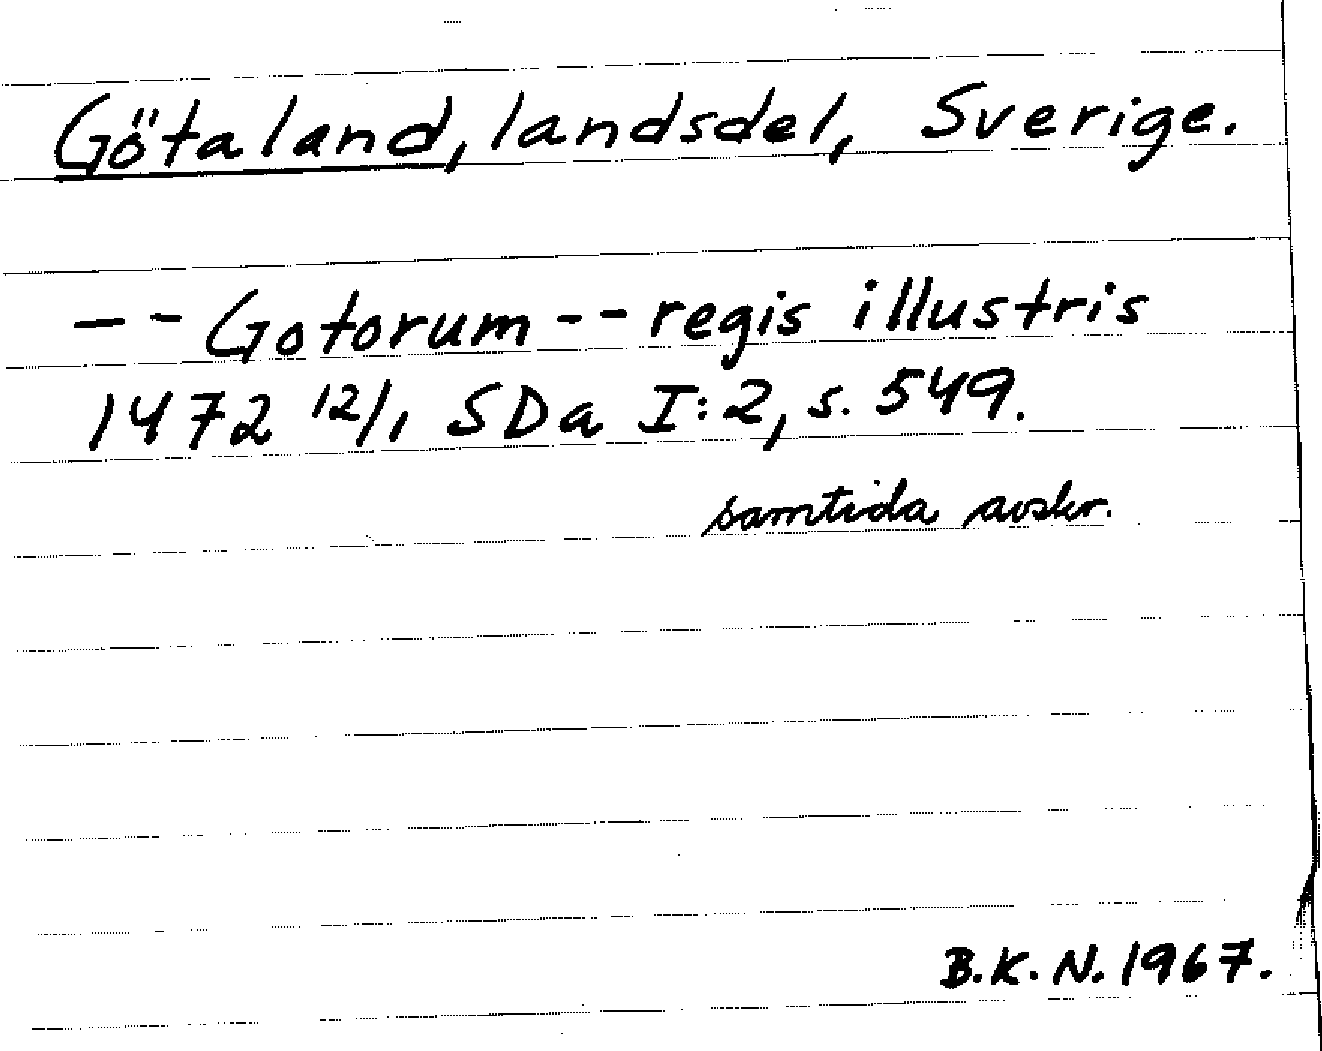 Götaland, landsdel, Sverige.
-- Gotorum -- regis illustris
1472 12/1 SDa I:2, s. 549.
samtida avskr.
B.K.N. 1967.